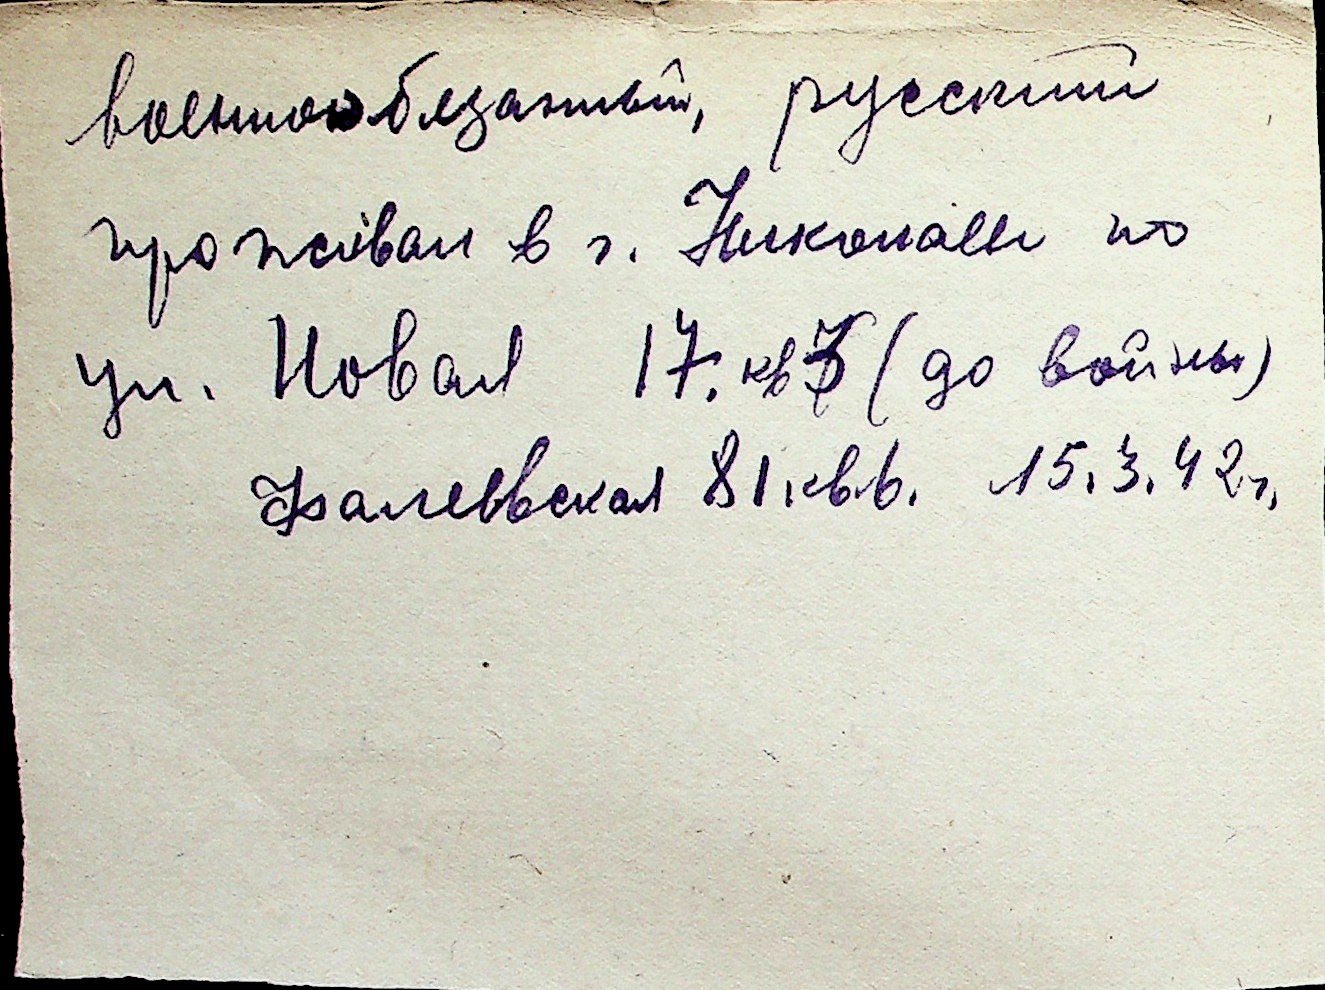 военнообязанный, русский
проживал в г. Николаеве по
ул. Новая 17. кв 3 (до войны)
Фалеевская 81. кв. 6. 15.3.42 г.